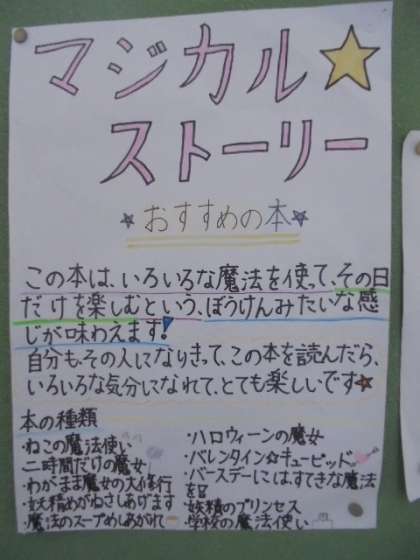 マジカル☆
ストーリー
★おすすめの本★
この本は、いろいろな魔法を使って、その日
だけを楽しむという、ぼうけんみたいな感
じが味わえます!
自分も、その人になりきって、この本を読んだら、
いろいろな気分になれて、とても楽しいです★
本の種類
・ねこの魔法使い
二時間だけの魔女
・わがまま魔女の大修行
・妖精めがねさしあげます
・魔法のスープめしあがれ
・ハロウィーンの魔女
・バレンタイン☆キューピッド。
・バースデーにはすてきな魔法
を
・妖精のプリンセス
・学校の魔法使い